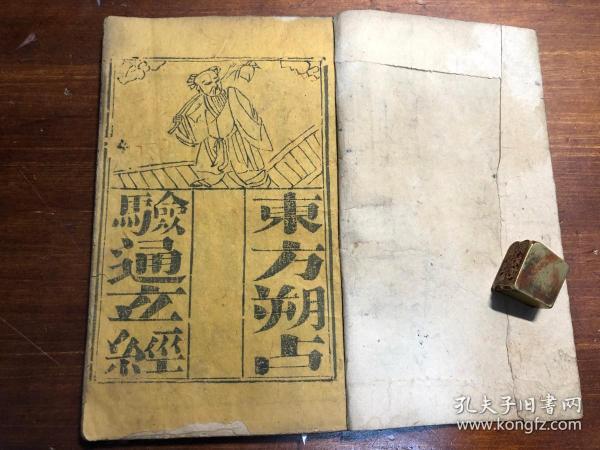 東方朔占
驗通玄經
孔夫子旧书网
www.kongfz.com